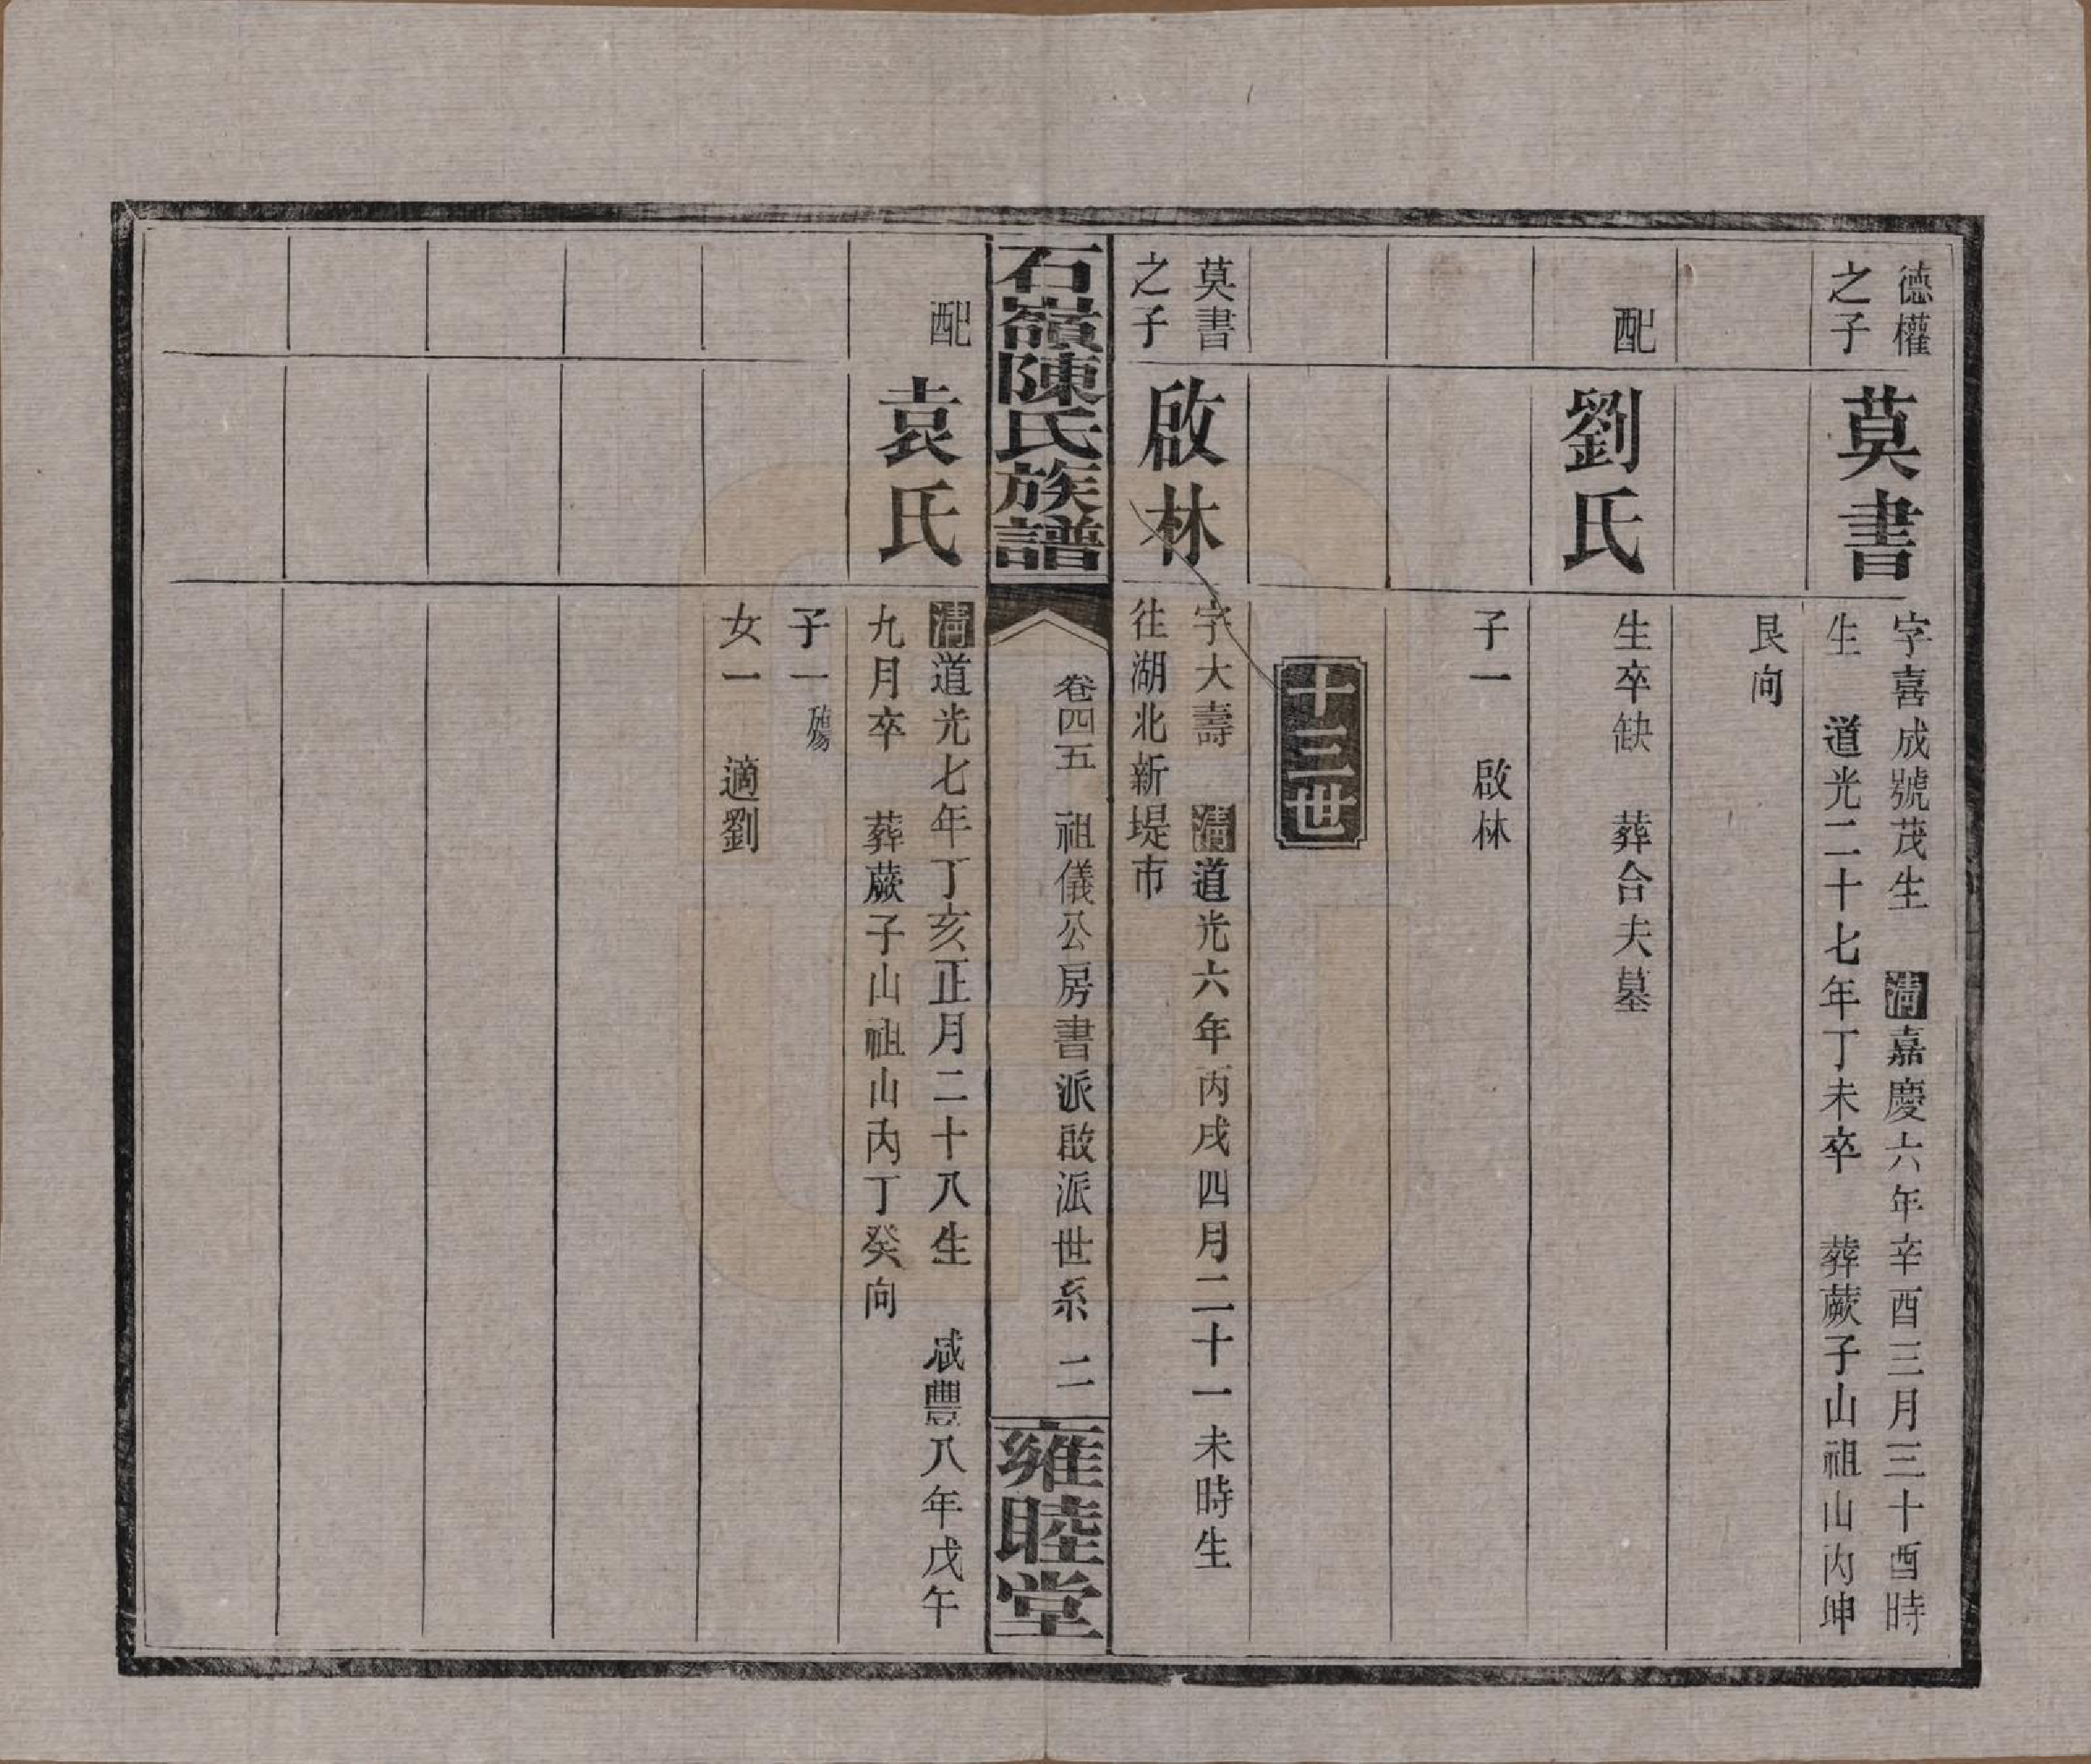 德權
之子
莫書
字喜成號茂生　清嘉慶六年辛酉三月三十酉時
生　道光二十七年丁未卒　葬蕨子山祖山內坤
艮向
配
劉氏
生卒缺　葬合夫墓
子一　啟林
十三世
莫書
之子
啟林
字大壽　清道光六年丙戌四月二十一未時生
往湖北新堤市
石嶺陳氏族譜
卷四五　祖儀公房書派啟派世系　二
雍睦堂
配
袁氏
清道光七年丁亥正月二十八生　咸豐八年戊午
九月卒　葬蕨子山祖山內丁癸向
子一　殤
女一　適劉